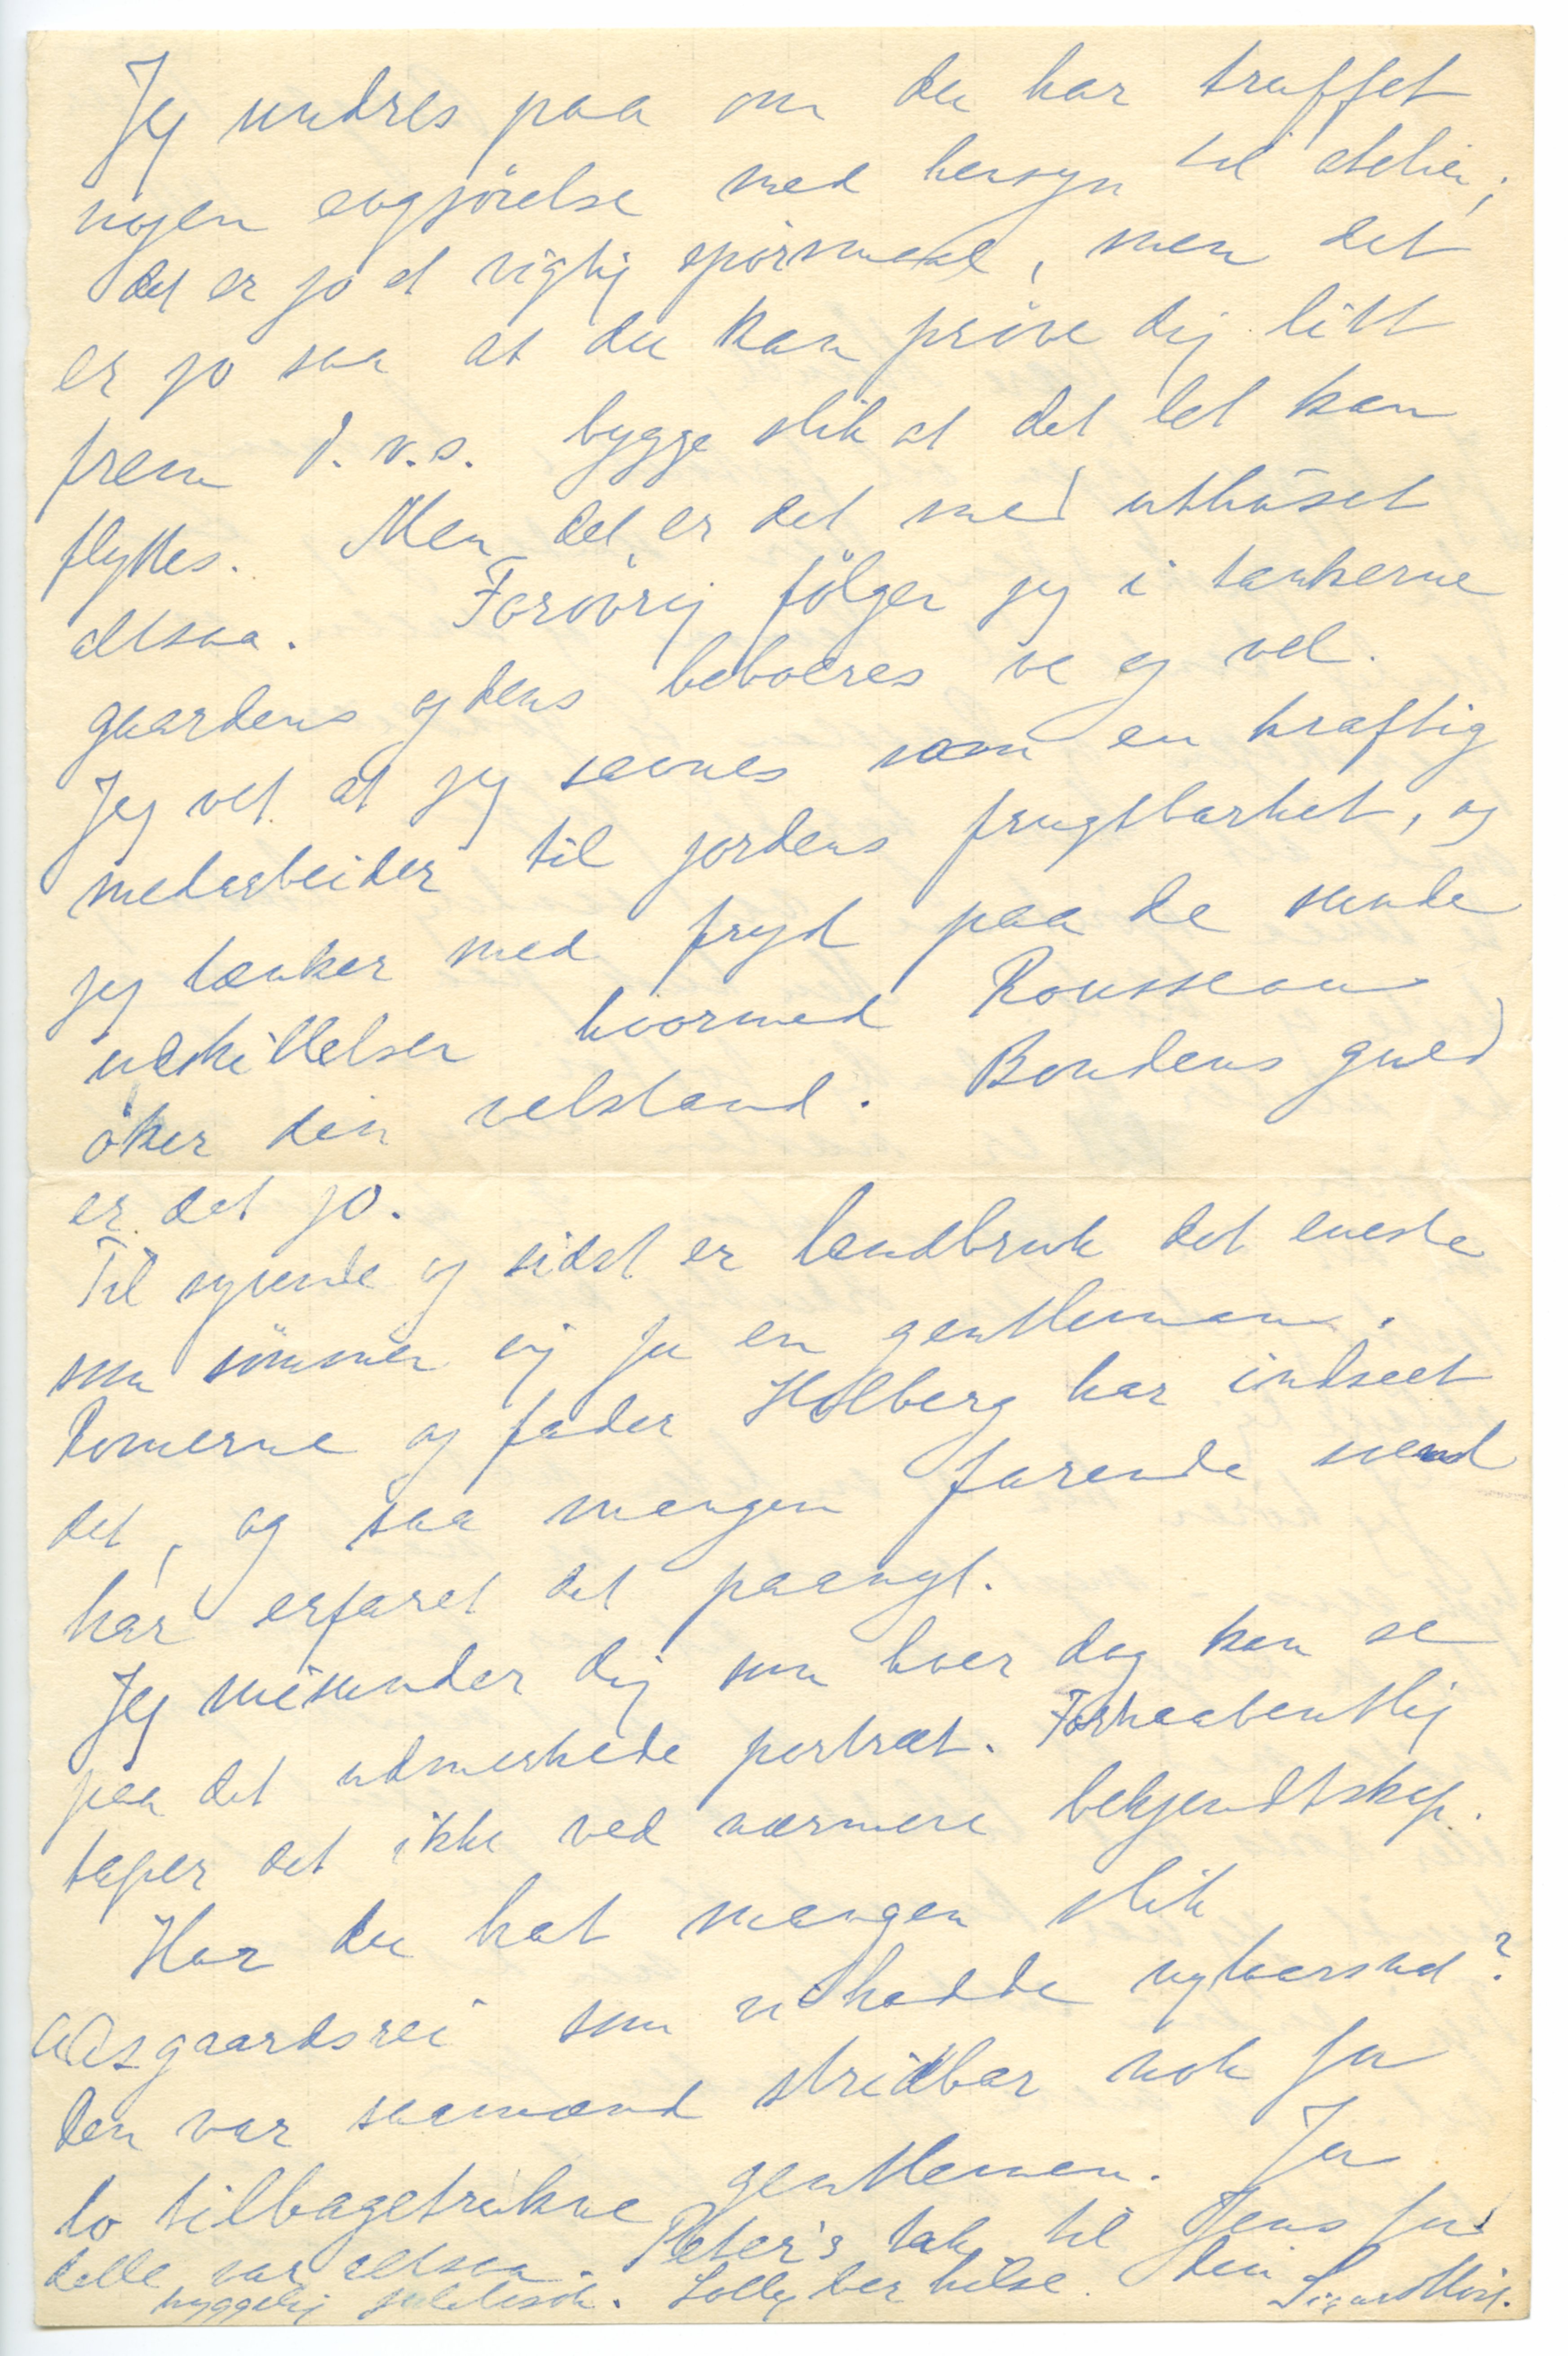 Jeg undres paa om du har truffet
nogen avgjörelse med hensyn til atelier;
det er jo et vigtig spörsmaal, men det
er jo saa at du kan pröve dig litt
frem d.v.s. bygge slik at det let kan
flyttes. Men det er det med uthuset
altsaa. Forövrig fölger jeg i tankerne
gaardens og dens beboeres ve og vel.
Jeg vet at jeg savnes som en kraftig
medarbeider til jordens frugtbarhet, og
jeg tænker med fryd paa de sunde
utskillelser hvormed Rousseau
öker din velstand. Bondens guld
er det jo.
Til syvende og sidst er landbruk det eneste
som sömmer sig for en gentleman.
Romerne og fader Holberg har indseet
det, og saa mangen farende svend
har erfaret det paanyt.
Jeg misunder dig som hver dag kan se
paa det udmerkede portræt. Forhaabentlig
taper det ikke ved nærmere bekjendtskap.
Har du hat mangen slik
Aasgaardsrei som vi hadde nytaarsnat?
Den var saamænd stridbar nok for
to tilbagetrukne gentlemen. For
dette var altsaa. Peter's tak til Jens for
hyggelig julebesök. Lolly ber hilse. Din Sigurd Höst.